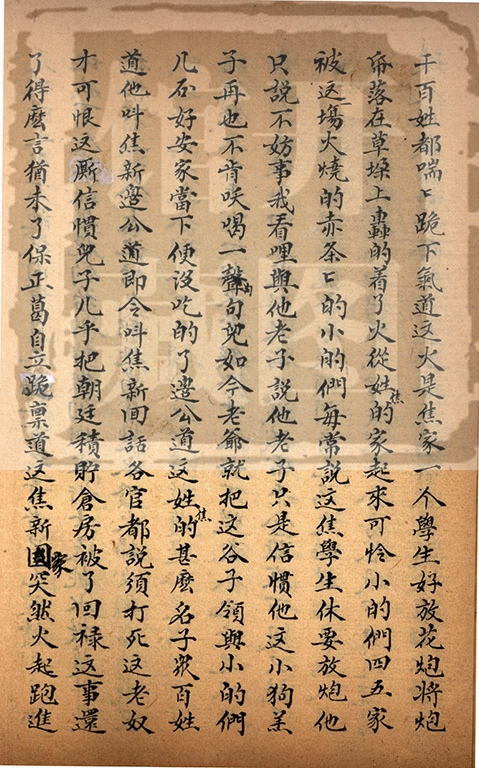 干百姓都喘〻跪下氣道这火是焦家一个學生好放花炮將炮
㠶落在草垜上轟的着了火從姓焦的家起來可怜小的們四五家
被这塲火燒的赤条〻的小的們每常説这焦學生休要放炮他
只説不妨事我看哩與他老子説他老子只是信慣他这小狗羔
子再也不肯吆喝一聲兩句兒如今老爺就把这谷子領與小的們
几石好安家當下便没吃的了邊公道这姓焦的甚麽名子衆百姓
道他呌焦新邊公道即令呌焦新回話各官都説須打死这老奴
才可恨这厮信慣兒子几乎把朝廷積貯倉房被了回禄这事還
了得麽言猶未了保正葛自立跪禀道这焦新家突然火起跑進